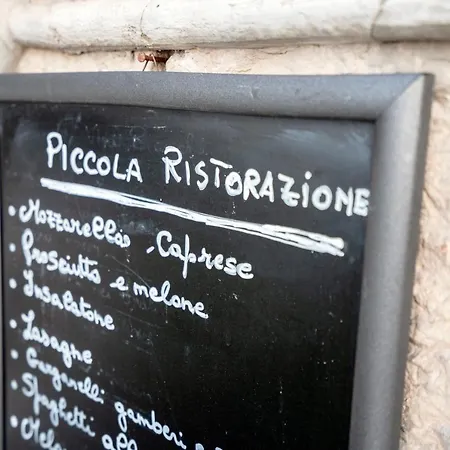 PICCOLA RISTORAZIONE
• Mozzarella, Caprese
• Prosciutto e melone
• Insalatone
• Lasagne
• Garganelli gamberi e
• Spaghetti all
• Melan